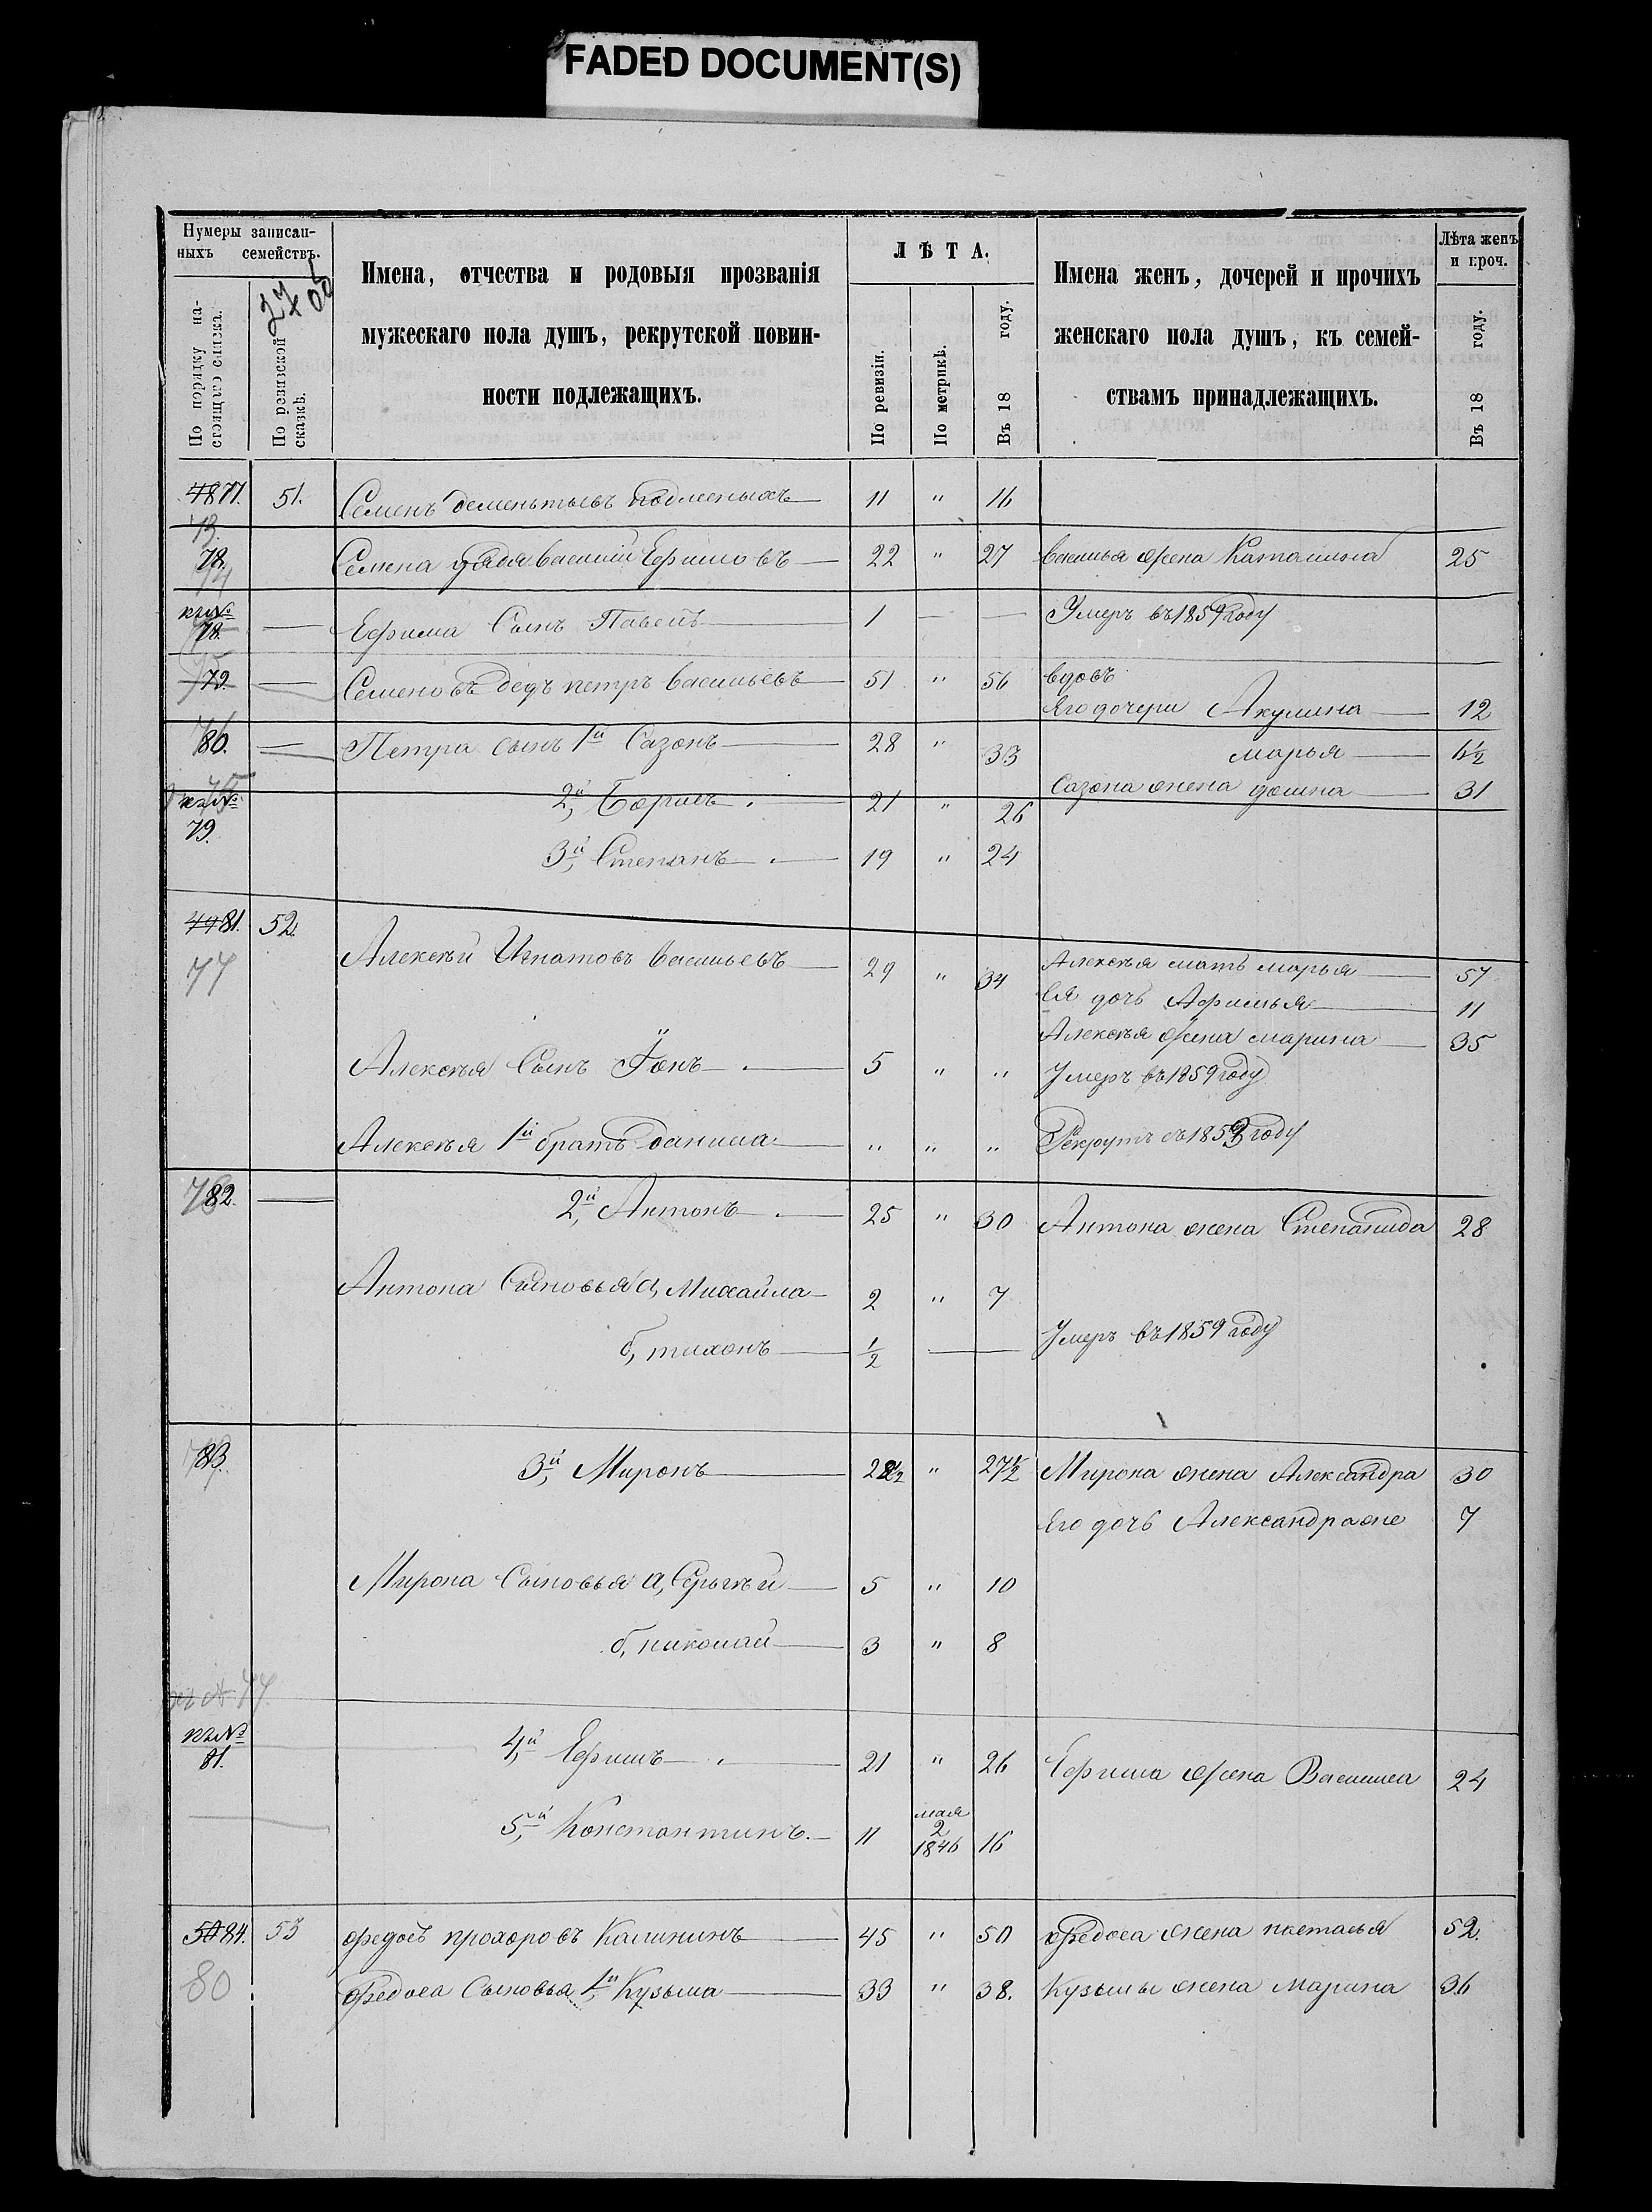 FADED DOCUMENT(S)
Нумеры записан-
ныхъ семействъ.
По порядку на-
стоящаго списка.
По ревизской
сказкѣ.
Имена, отчества и родовыя прозванія
мужескаго пола душъ, рекрутской повин-
ности подлежащихъ.
ЛѢТА.
По ревизіи.
По метрикѣ.
Въ 18 году.
Имена женъ, дочерей и прочихъ
женскаго пола душъ, къ семей-
ствамъ принадлежащихъ.
Лѣта женъ
и проч.
Въ 18 году.
48 77. 51. Семенъ дементьевъ 11 " 16
73
78. Семена дядя василій Ефимовъ 22 " 27 василья жена Каталина 25
74
къ №
78. — Ефима Сынъ Павелъ 1 — — Умеръ въ 1859 году
75
79. — Семеновъ дедъ петръ васильевъ 51 " 56 вдовъ
Его дочери Акулина 12
76
80. — Петра сынъ 1й Сазонъ 28 " 33 марья 6½
къ № 79. 2й, Борисъ 21 " 26 Сазона жена домна 31
3й, Степанъ 19 " 24
49 81. 52. Алексѣй Игнатовъ васильевъ 29 " 34 Алексѣя мать марья 57
77
Ея дочь Афимья 11
Алексѣя жена марина 35
Алексѣя Сынъ Іонъ 5 " " Умеръ въ 1859 году
Алексѣя 1й братъ данила " " " Рекрутъ съ 1853 году
78
82. — 2й, Антонъ 25 " 30 Антона жена Степанида 28
Антона Сыновья а, Михайла 2 " 7
б, тихонъ ½ — Умеръ въ 1859 году
83. 3й, Миронъ 22½ " 27½ Мирона жена Александра 30
Его дочь Александра же 7
Мирона Сыновья а, Сергѣй 5 " 10
б, николай 3 " 8
къ № 77.
къ №
81. 4й, Ефимъ 21 " 26 Ефима жена Василиса 24
5й, Константинъ. 11 мая 2 1846 16
50 84. 53 федосъ прохоровъ Калининъ 45 " 50 федоса жена настасья 52.
80
федоса Сыновья 1й, Кузьма 33 " 38. Кузьмы жена Марина 36